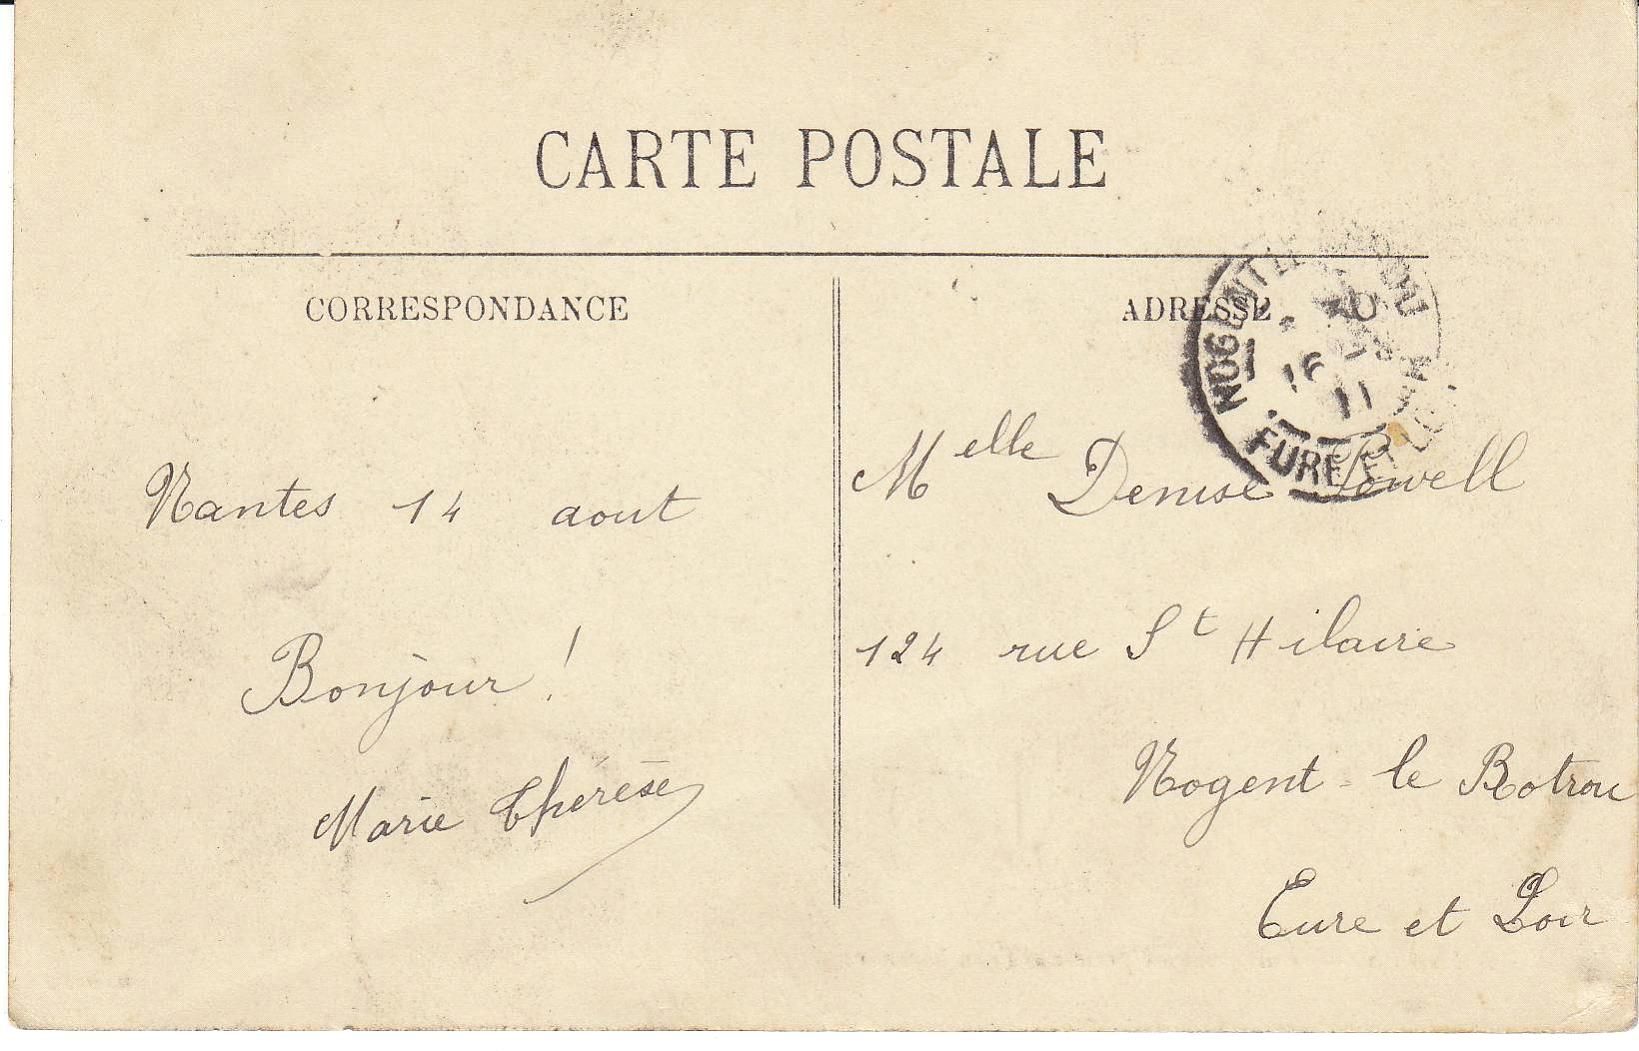 CARTE POSTALE
CORRESPONDANCE
Nantes 14 aout
Bonjour !
Marie Thérèse
ADRESSE
NOGENT LE ROTROU
16 - 8
11
EURE ET LOIR
Melle Denise Powell
124 rue St Hilaire
Nogent - le Rotrou
Eure et Loir